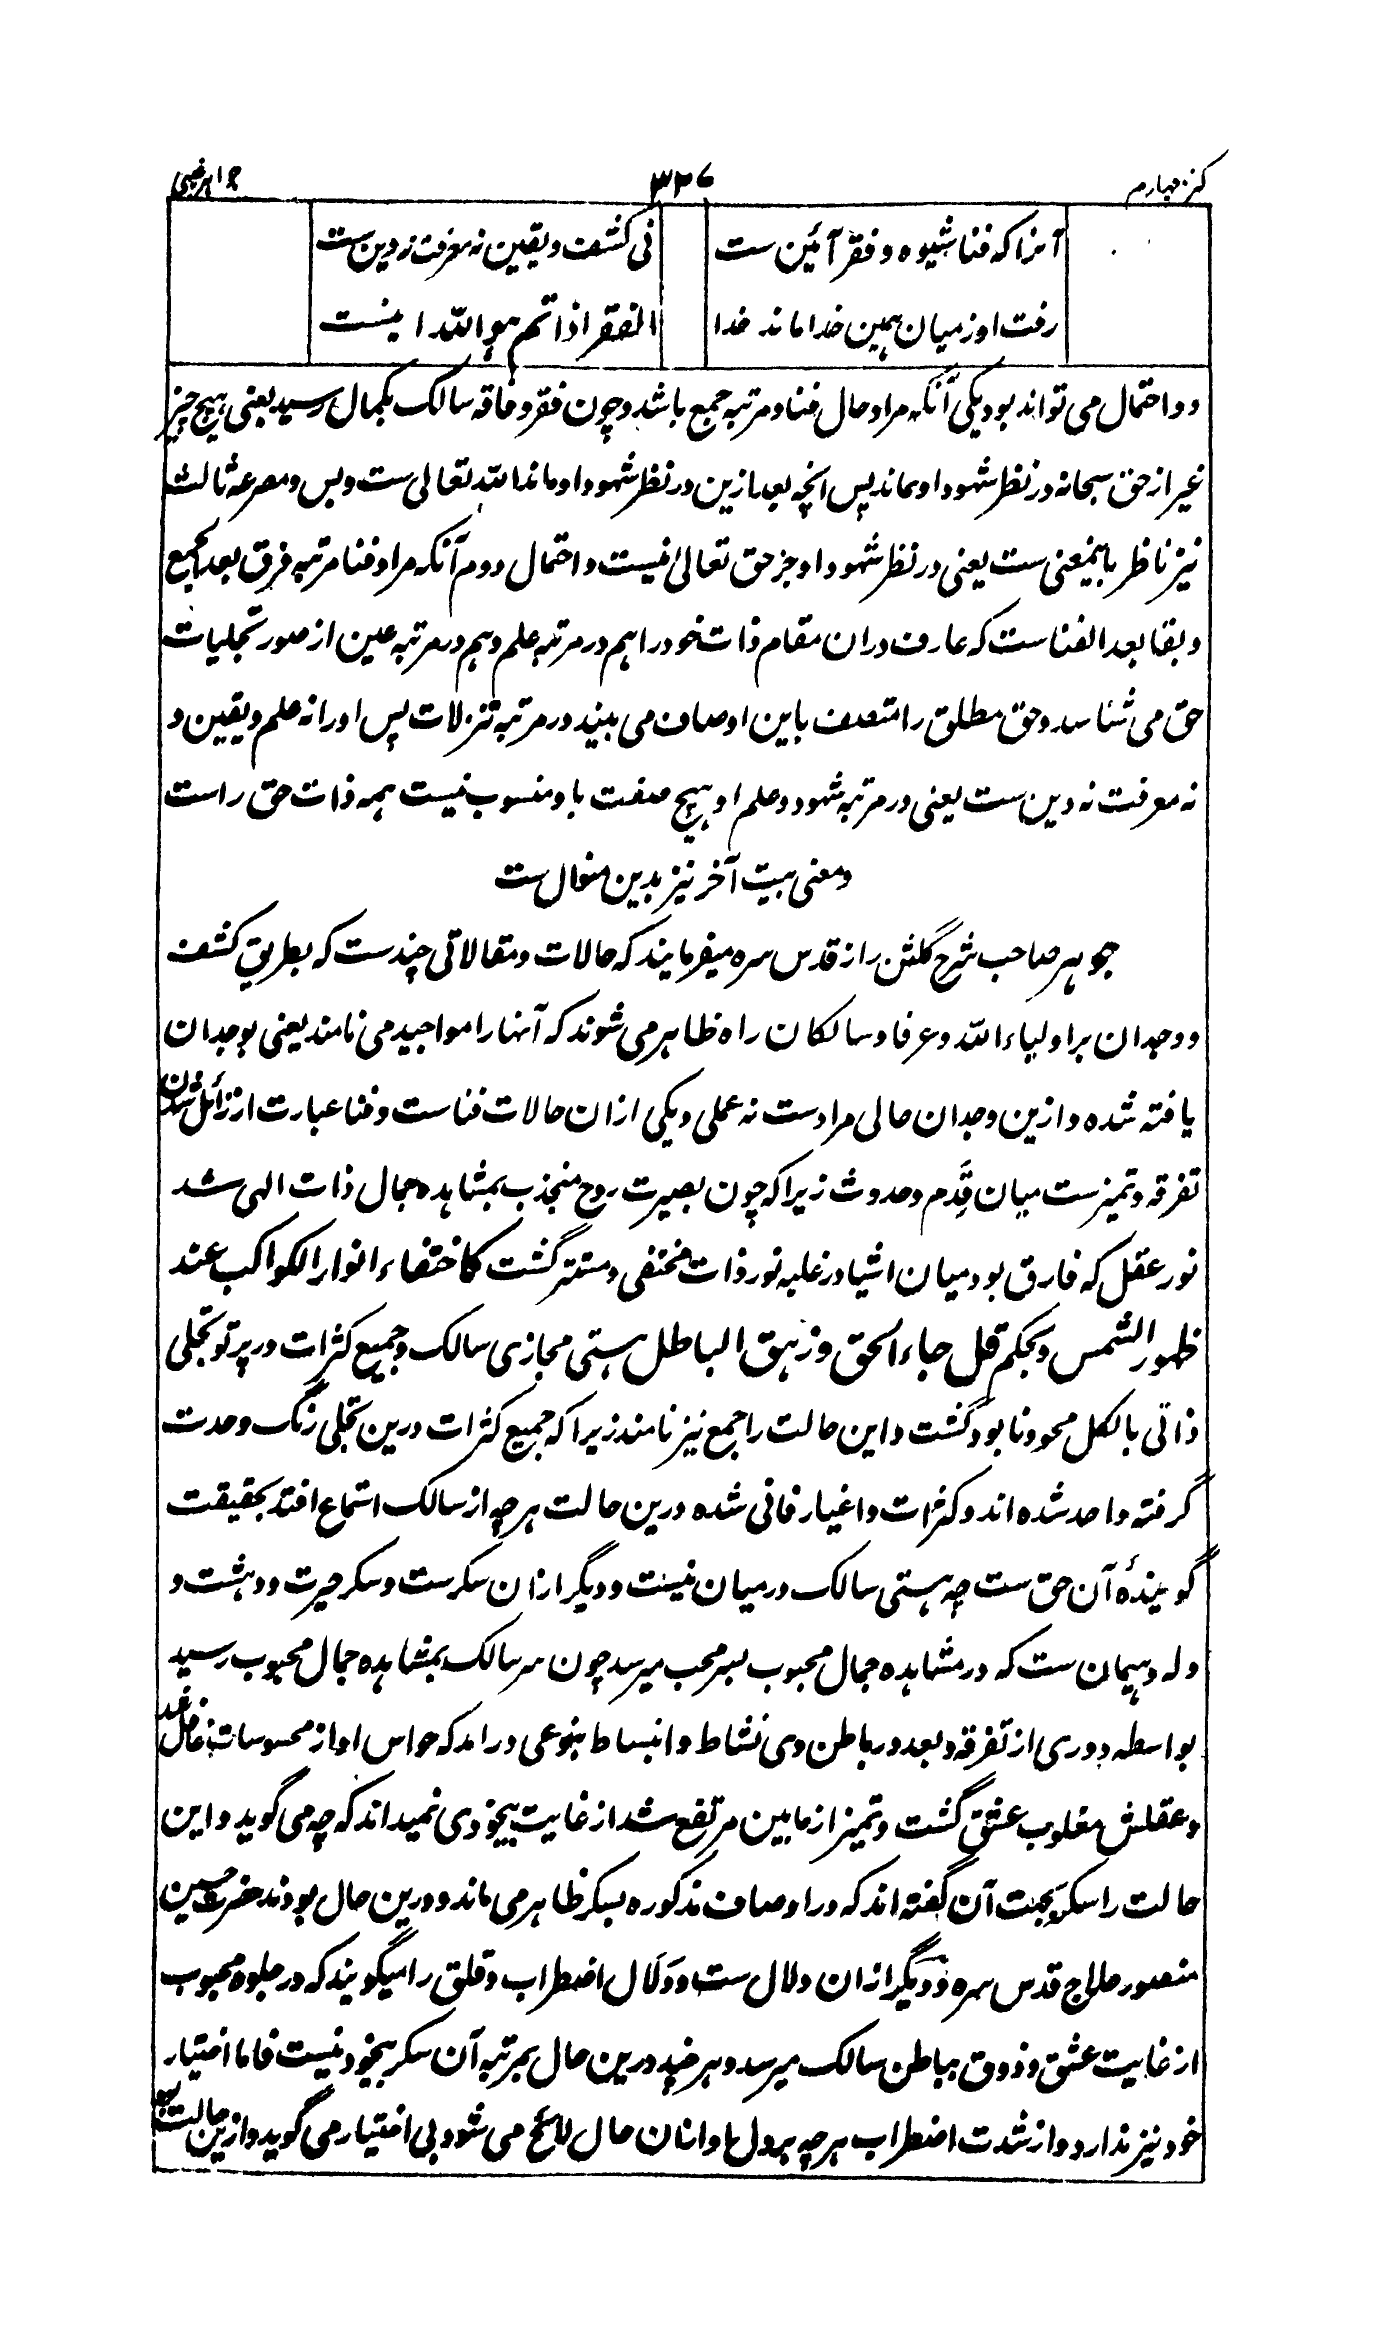 کنز چہارم
۳۲۷
جواہر غیبی
آنرا که فنا شیوه و فقر آئین ست
نی کشف و یقین نه معرفت نه دین ست
رفت او ز میان ہمین خدا ماند خدا
الفقر اذا تم ہو اللّٰه اینست
دو احتمال می تواند بود یکی آنکه مراد حال فنا و مرتبه جمع باشد و چون فقر و فاقه سالک بکمال رسید یعنی ہیچ چیز
غیر از حق سبحانه در نظر شہود او نماند پس انچه بعد ازین در نظر شہود او ماند اللّٰه تعالی ست و بس و مصرعه ثالث
نیز ناظر باینمعنی ست یعنی در نظر شہود او جز حق تعالیٰ نیست و احتمال دوم آنکه مراد فنا مرتبه فرق بعد الجمع
و بقا بعد الفناست که عارف دران مقام ذات خود را ہم در مرتبه علم و ہم در مرتبه عین از صور تجلیات
حق می شناسد و حق مطلق را متصف باین اوصاف می بیند در مرتبه تنزلات پس او را نه علم و یقین و
نه معرفت نه دین ست یعنی در مرتبه شہود و علم او ہیچ صفت باو منسوب نیست ہمه ذات حق راست
و معنی بیت آخر نیز بدین منوال ست
جوہر صاحب شرح گلشن راز قدس سره میفرمایند که حالات و مقالاتی چندست که بطریق کشف
و وجدان بر اولیاء اللّٰه و عرفا و سالکان راه ظاہر می شوند که آنہا را مواجید می نامند یعنی بوجدان
یافته شده و ازین وجدان حالی مرادست نه عملی و یکی ازان حالات فناست و فنا عبارت از زائل شدن
تفرقه و تمیزست میان قِدَم و حدوث زیرا که چون بصیرت روح منجذب بمشاہده جمال ذات الہی شد
نور عقل که فارق بود میان اشیا در غلبه نور ذات مختفی و مستتر گشت کاختفاء انوار الکواکب عند
ظہور الشمس و بحکم قل جاء الحق و زہق الباطل ہستی مجازی سالک و جمیع کثرات در پرتو تجلی
ذاتی بالکل محو و نابود گشت و این حالت را جمع نیز نامند زیرا که جمیع کثرات درین تجلی رنگ وحدت
گرفته واحد شده اند و کثرات و اغیار فانی شده درین حالت ہر چه از سالک استماع افتد بحقیقت
گویندهٔ آن حق ست چه ہستی سالک درمیان نیست و دیگر ازان سکرست و سکر حیرت و دہشت و
وله و ہیمان ست که در مشاہده جمال محبوب بسر محب میرسد چون سر سالک بمشاہده جمال محبوب رسید
بواسطه دوری از تفرقه و بعد در باطن وی نشاط و انبساط بنوعی در امد که حواس او از محسوسات غافل شد
و عقلش مغلوب عشق گشت و تمیز از مابین مرتفع شد از غایت بیخودی نمیداند که چه می گوید و این
حالت را سکر بجہت آن گفته اند که در اوصاف مذکوره بسکر ظاہر می ماند و درین حال بودند حضرت حسین
منصور حلاج قدس سره و دیگر ازان دلال ست و دَلَال اضطراب و قلق را میگویند که در جلوه محبوب
از غایت عشق و ذوق بباطن سالک میرسد و ہر چند درین حال بمرتبه آن سکر بیخود نیست فاما اختیار
خود نیز ندارد و از شدت اضطراب ہر چه بر دل او انان حال لائح می شود بی اختیار می گوید و ازین حالت